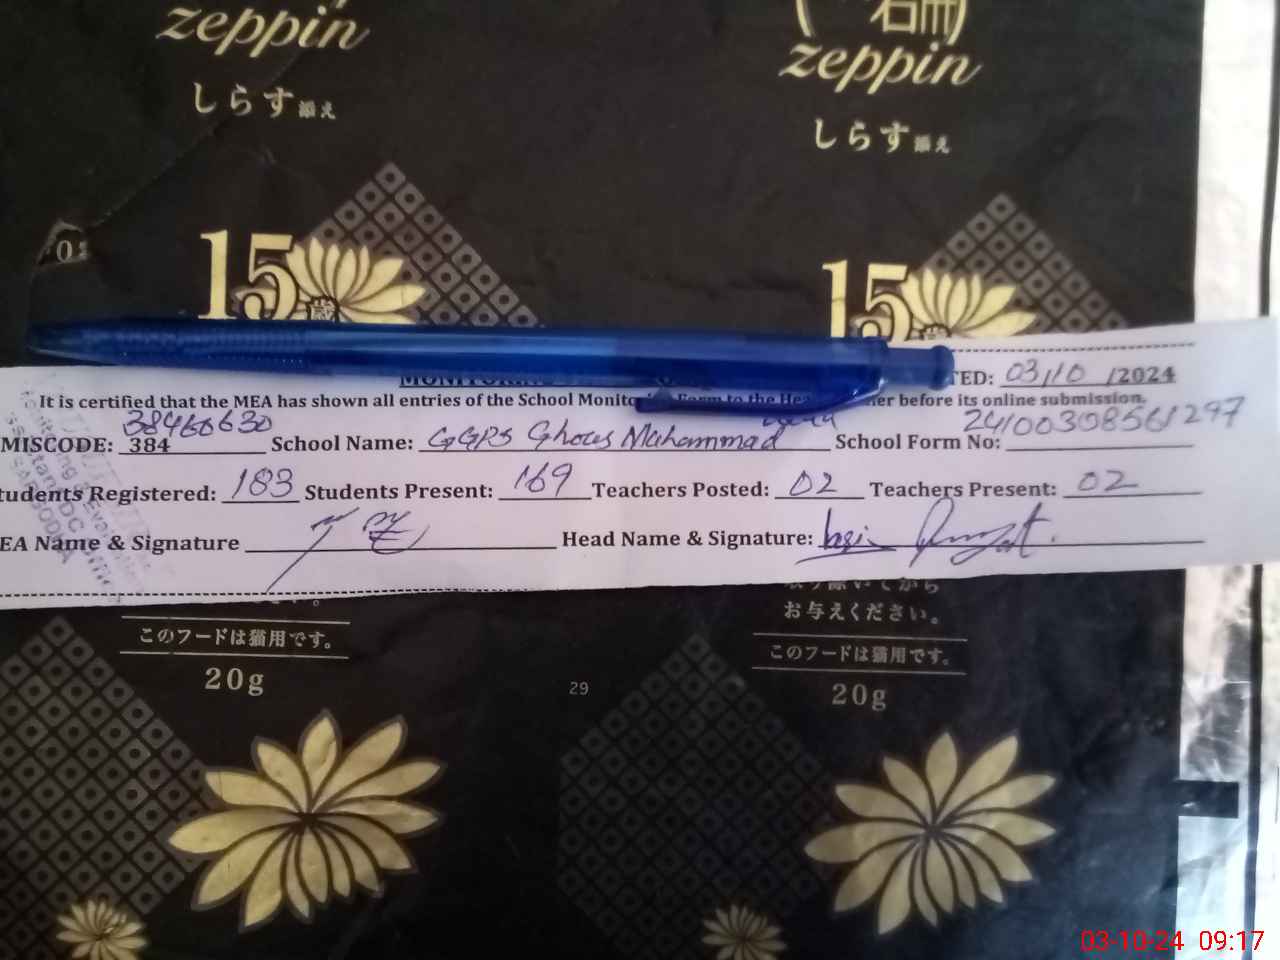 zeppin
zeppin
しらす添え
しらす添え
15歳
15歳
DATED: 03/10/2024
It is certified that the MEA has shown all entries of the School Monitoring Form to the Head before its online submission.
38460630
24100308561297
MISCODE: 384 School Name: GGPS Ghous Muhammad School Form No:
Students Registered: 183 Students Present: 169 Teachers Posted: 02 Teachers Present: 02
MEA Name & Signature Head Name & Signature:
お与えください。
このフードは猫用です。
このフードは猫用です。
20g
29
20g
03-10-24 09:17